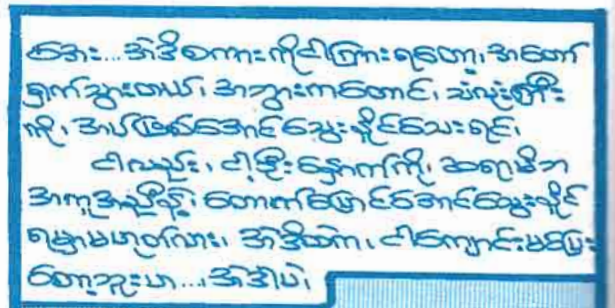 အေး...အဲဒီစကားကိုငါကြားရတော့၊အတော်
ရှက်သွားတယ်၊ အဘွားကတောင်၊ သံလုံးကြီး
ကို၊ အပ်ဖြစ်အောင်သွေးနိုင်သေးရင်၊
ငါလည်း၊ ငါ့ဦးနှောက်ကို၊ ဆရာမိဘ
အကူအညီနဲ့၊ တောက်ပြောင်အောင်သွေးနိုင်
ရမှာမဟုတ်လား၊ အဲဒီထဲက၊ ငါကျောင်းမပြေး
တော့ဘူးဟ...အဲဒါပဲ၊